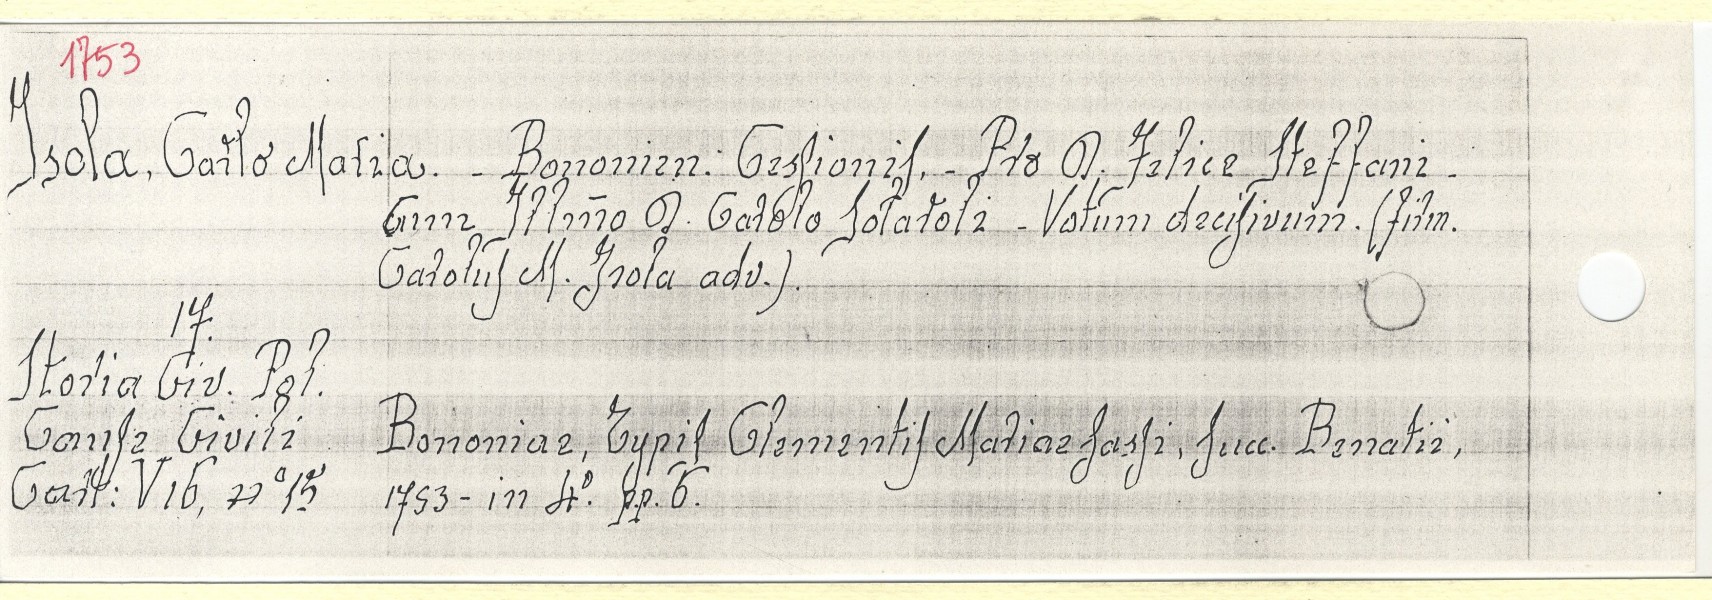 1753
Isola, Carlo Maria. - Bononien. Cessionis, - Pro D. Felice Steffani -
Cum Illm̃o D. Carolo Solaroli - Votum decisivum. (firm.
Carolus M. Isola adv.).
17.
Storia Civ. Pol.
Cause Civili Bononiae, Typis Clementis Mariae Sassi, Succ. Benatii,
Cart: V16, n° 15 1753 - in 4°. pp. 6.